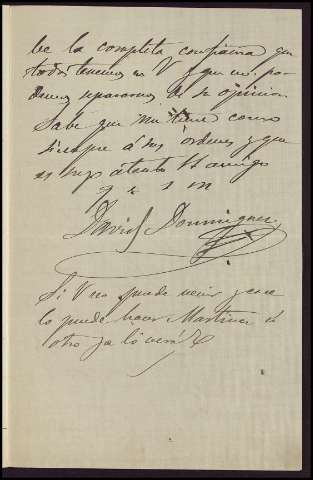 be la completa confianza que
todos tenemos en V y que no po-
demos separarnos de su opinion.
Sabe que me tiene como
siempre á sus órdenes y que
es muy atento S. amigo
q b s m
David Dominguez
Si V no puede venir
lo puede hacer Martinez ú
otro ya lo verá